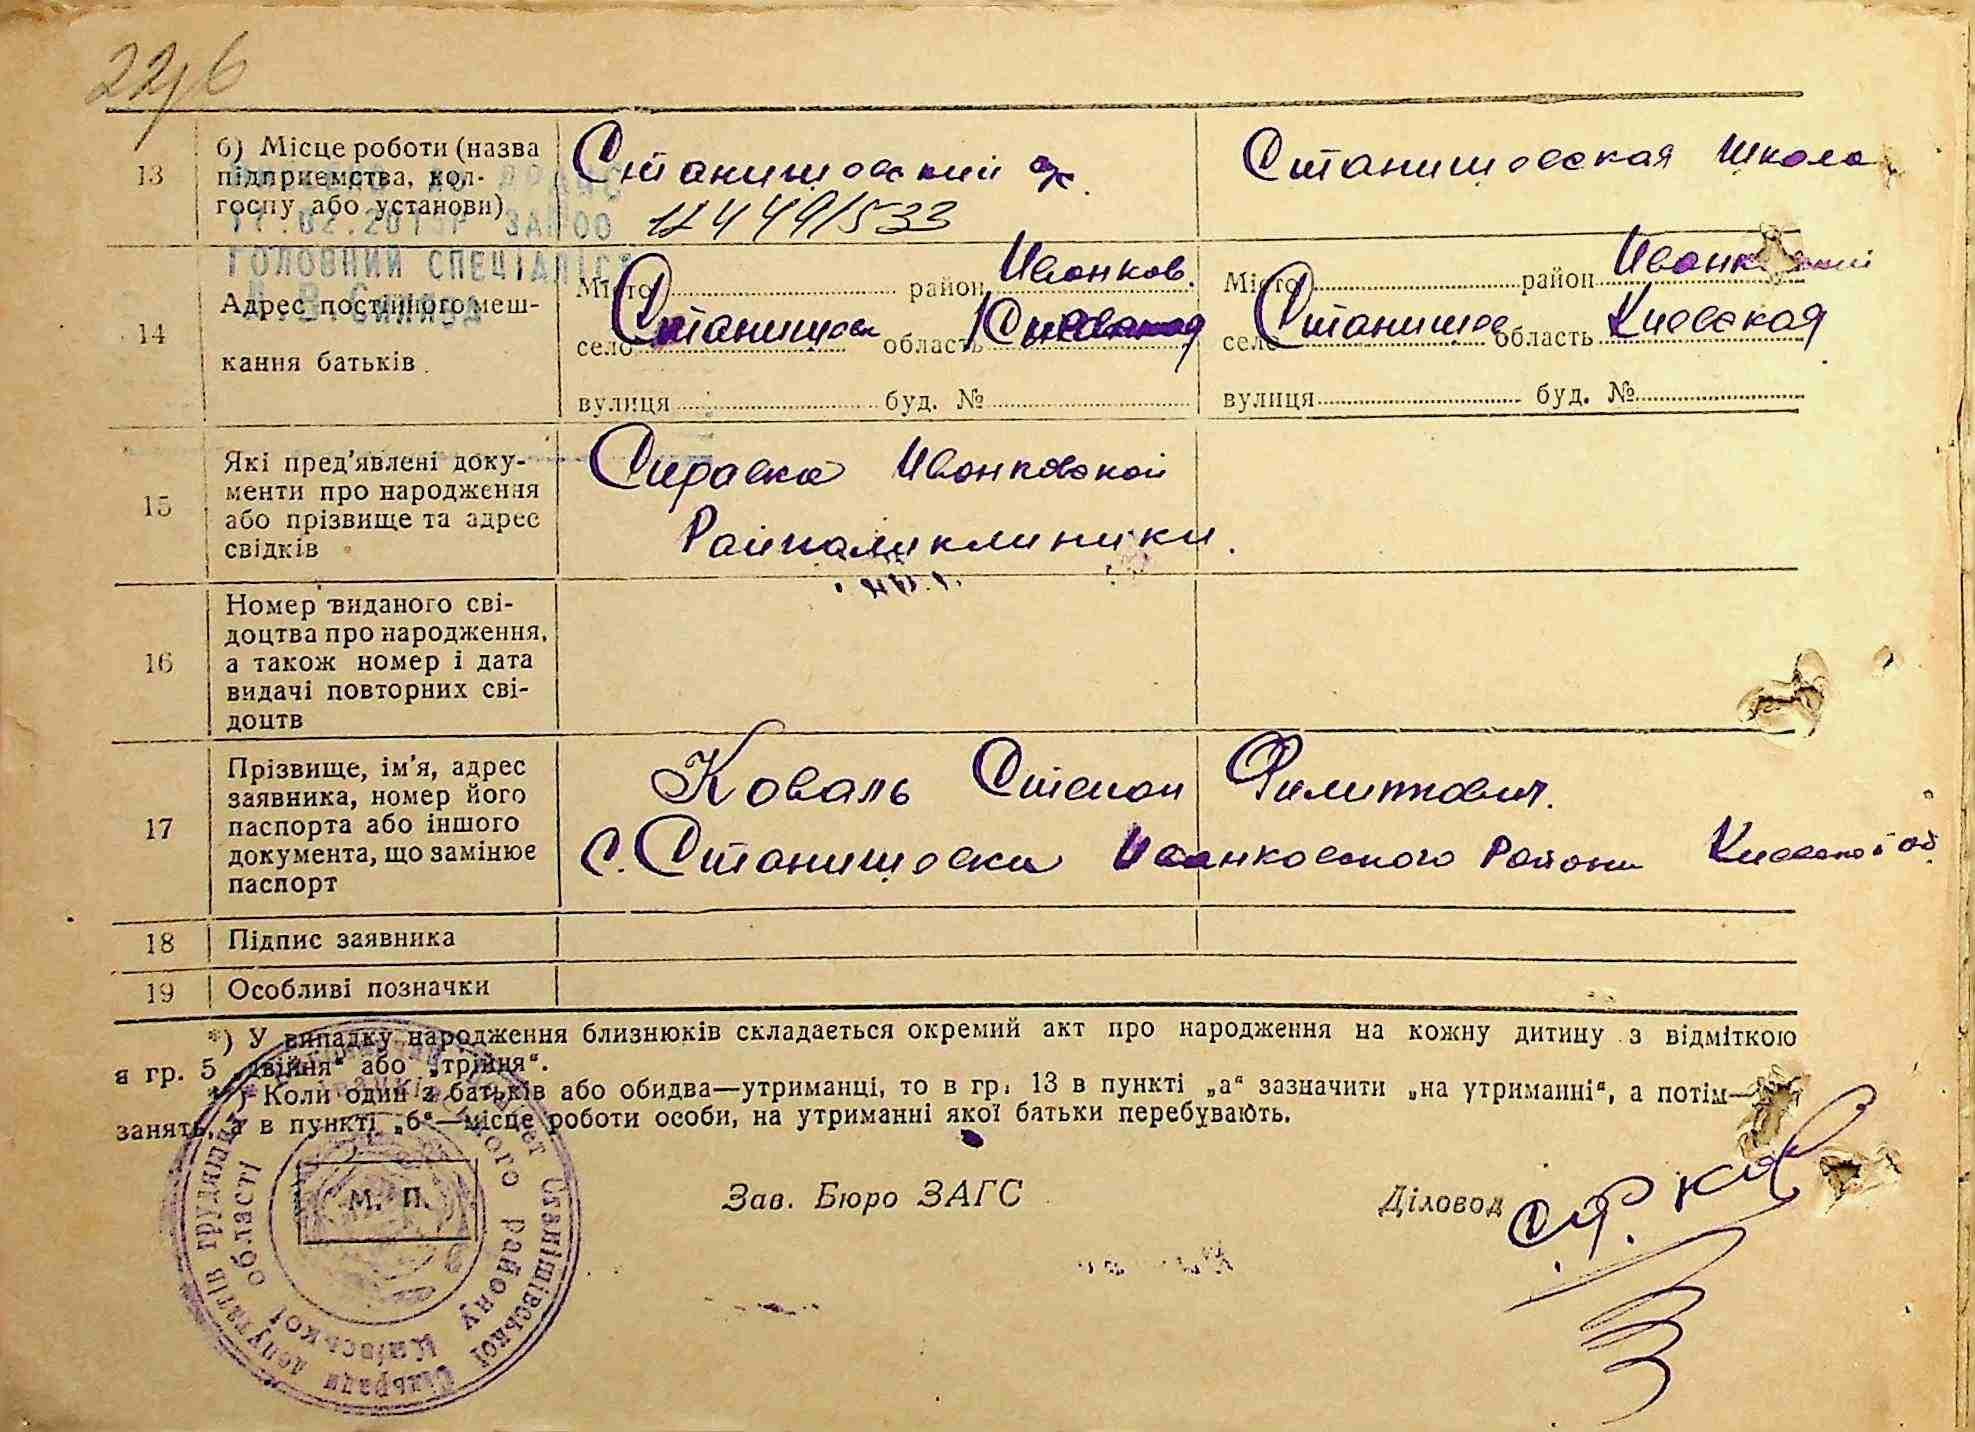 22
13
б) Місце роботи (назва
підприємства, кол-
госпу або установи)
Станишовский
Станишовская школа
12449/533
17.02.2015р ЗАПОО
ГОЛОВНИЙ СПЕЦІАЛІСТ
14
Адрес постійного меш-
кання батьків
Місто район Иванков.
село Станишовк область
вулиця буд. №
Місто район Иванковский
село Станишов область Киевская
вулиця буд. №
15
Які пред'явлені доку-
менти про народження
або прізвище та адрес
свідків
Справка Иванковской
Райполиклиники.
16
Номер виданого сві-
доцтва про народження,
а також номер і дата
видачі повторних сві-
доцтв
17
Прізвище, ім'я, адрес
заявника, номер його
паспорта або іншого
документа, що замінює
паспорт
Коваль Степан Филиппович.
с. Станишовка Иванковского Района Киевской об
18
Підпис заявника
19
Особливі позначки
*) У випадку народження близнюків складається окремий акт про народження на кожну дитину з відміткою
в гр. 5 „двійня“ або „трійня“.
**) Коли один з батьків або обидва—утриманці, то в гр. 13 в пункті „а“ зазначити „на утриманні“, а потім—
занять, а в пункті „б“—місце роботи особи, на утриманні якої батьки перебувають.
М. П.
Зав. Бюро ЗАГС
Діловод
Станішівської Сільради депутатів трудящих
району Київської області